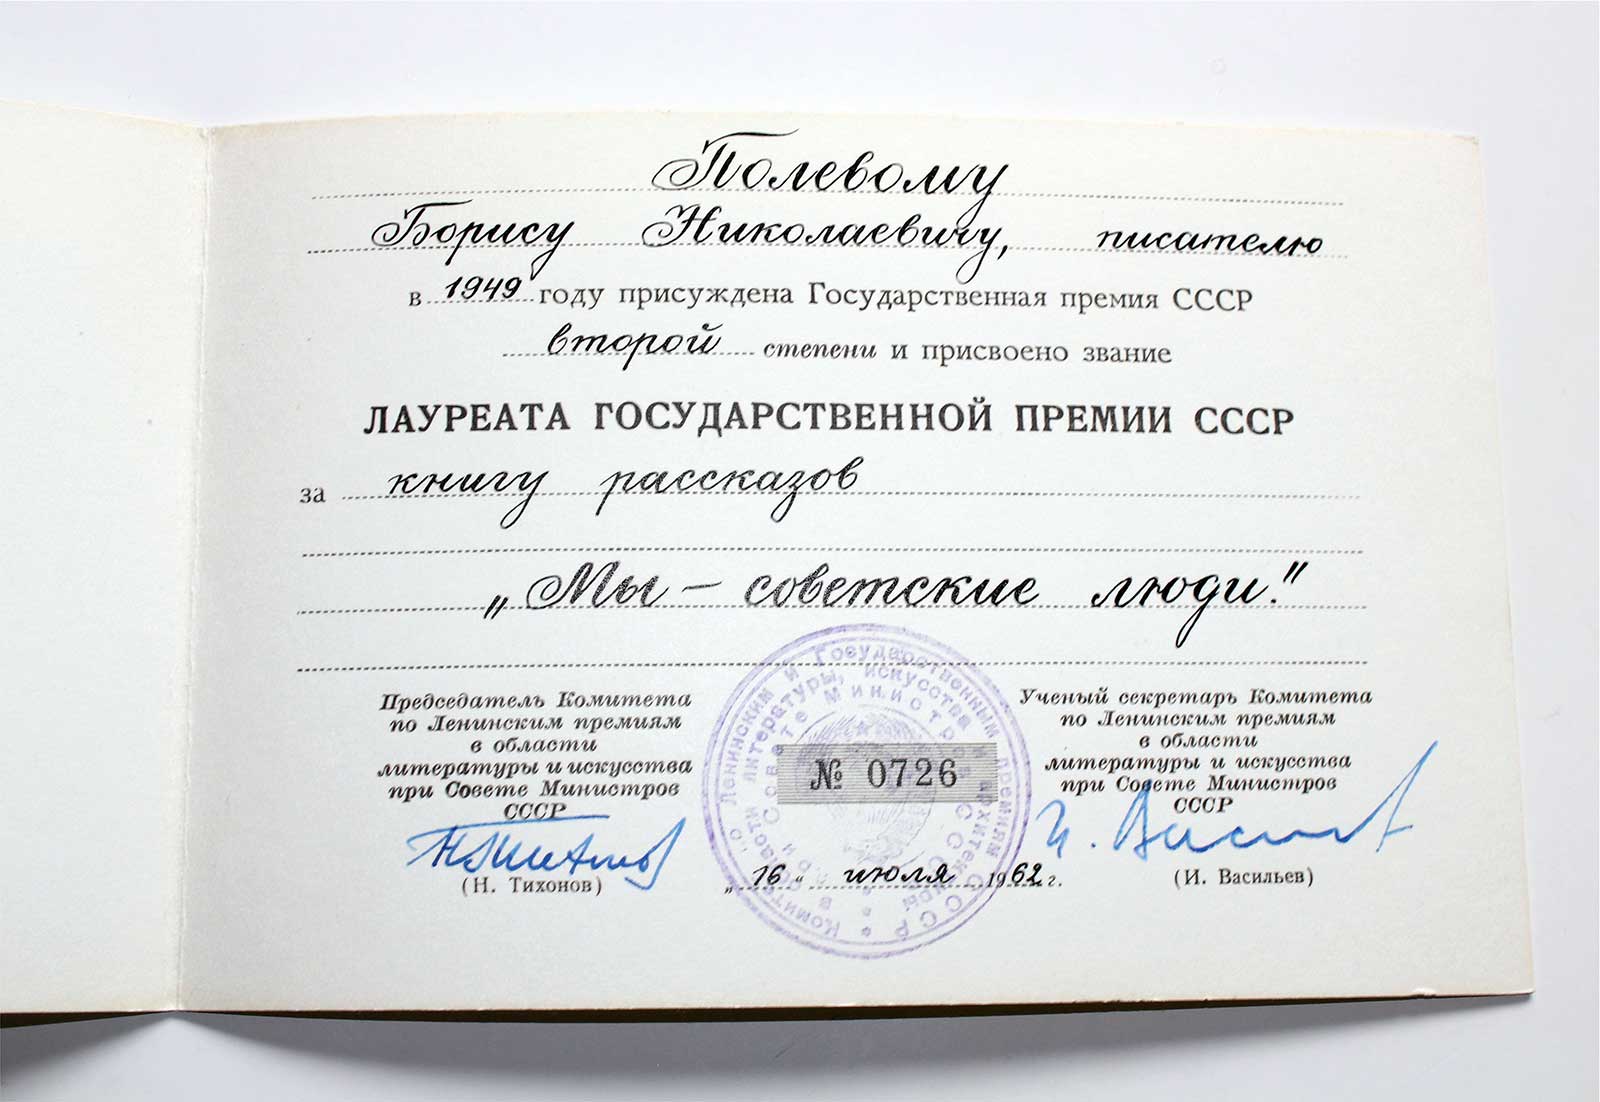 Полевому
Борису Николаевичу, писателю
в 1949 году присуждена Государственная премия СССР
второй степени и присвоено звание
ЛАУРЕАТА ГОСУДАРСТВЕННОЙ ПРЕМИИ СССР
за книгу рассказов
„Мы – советские люди."
Председатель Комитета
по Ленинским премиям
в области
литературы и искусства
при Совете Министров
СССР
(Н. Тихонов)
Ученый секретарь Комитета
по Ленинским премиям
в области
литературы и искусства
при Совете Министров
СССР
И. Васильев
(И. Васильев)
Комитет по Ленинским и Государственным премиям СССР
в области литературы, искусства и архитектуры
при Совете Министров СССР
№ 0726
„16" июля 1962 г.